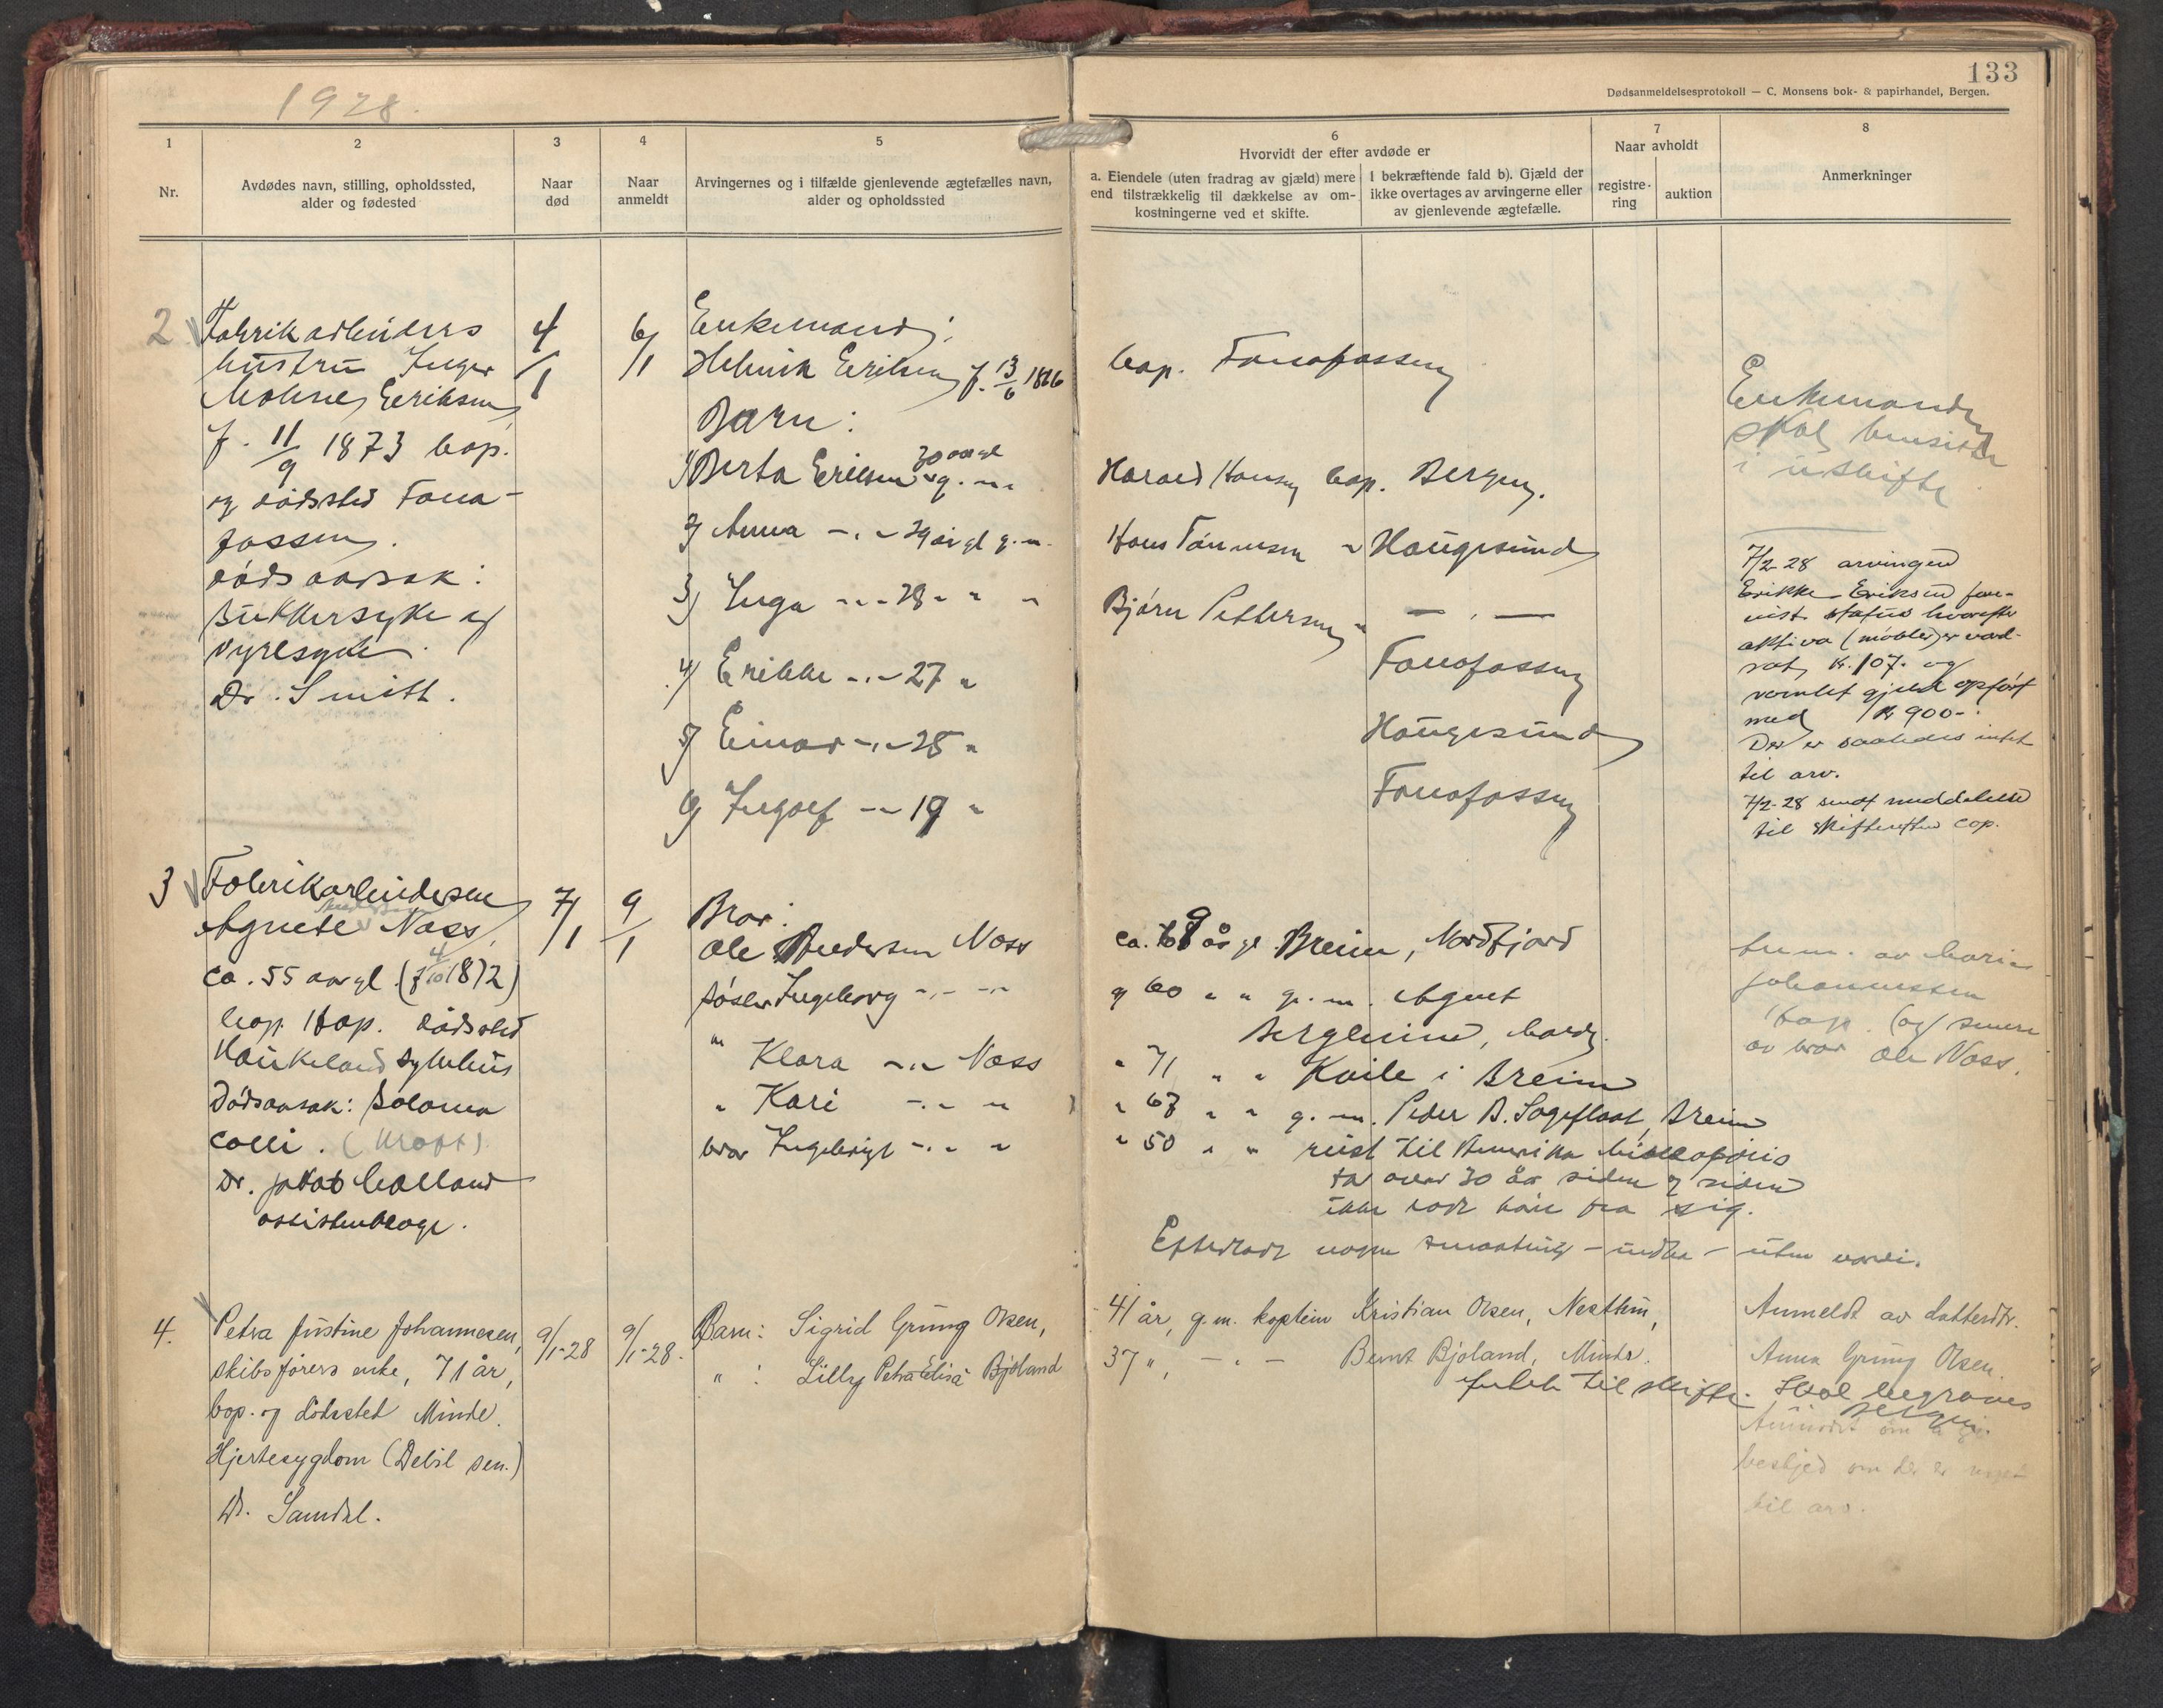 1928.
133
Dødsanmeldelsesprotokoll — C. Monsens bok- & papirhandel, Bergen.
1
2
3
4
5
6
7
8
Nr.
Avdødes navn, stilling, opholdssted,
alder og fødested
Naar
død
Naar
anmeldt
Arvingernes og i tilfælde gjenlevende ægtefælles navn,
alder og opholdssted
Hvorvidt der efter avdøde er
a. Eiendele (uten fradrag av gjæld) mere
end tilstrækkelig til dækkelse av om-
kostningerne ved et skifte.
I bekræftende fald b). Gjæld der
ikke overtages av arvingerne eller
av gjenlevende ægtefælle.
Naar avholdt
registre-
ring
auktion
Anmerkninger
2
Fabrikarbeiders
hustru Inger
Eriksen
f. 11/9 1873 bop.
og dødssted Fana-
fossen.
Dødsaarsak:
Sukkersyke og
nyresyke.
Dr. Smith.
4/1
6/1
Enkemand:
Henrik Eriksen f. 13/6 1866
bop. Fanafossen
Barn:
1) Berta Eriksen 30 aar gl g. m.
Harald Hansen bop. Bergen.
2) Anna -"- 29 år gl g. m.
Hans Tønnesen " Haugesund
3) Inga -"- 28 " " "
Bjørn Pettersen " — " —
4) Erikke -"- 27 "
Fanafossen
5) Einar -"- 25 "
Haugesund
6) Ingolf -"- 19 "
Fanafossen
Enkemanden
skal bensitte
i uskifte
7/2-28 arvingen
Erikke Eriksen frem-
vist status hvorefter
aktiva (møbler) er værd-
sat kr. 107.- og
samlet gjeld opført
med kr 900-.
Der er saaledes intet
til arv.
7/2-28 sendt meddelelse
til skifteretten cop.
3
Fabrikarbeiderske
Agnete Andersen Noss,
ca. 55 aar gl. (f 4/10 1872)
bop. Hop. dødssted
Haukeland sykehus
Dødsaarsak:
coli. (kræft).
Dr. Jakob Mølland
assistentlæge.
7/1
9/1
Bror:
Ole Andersen Noss
ca. 69 år gl. Breim, Nordfjord
søster Ingeborg -"- -"-
" 60 " " g. m.
" Klara -"- Noss
" 71 " " Kvile i Breim
" Kari -"- "
" 67 " " g. m. Peder A. Sagefloat, Breim
bror Ingebrigt -"- "
" 50 " " reist til Amerika
for over 30 år siden og siden
ikke ladt høre fra sig.
Efterladt nogen småting - indbo - uten værdi.
anm. av
Johannessen
Hop. (og) senere
av bror Ole Noss.
4.
Petra Justine Johannesen,
skibsførers enke, 71 år,
bop. og dødssted Minde.
Hjertesygdom (Debil. sen.)
Dr. Samdal.
9/1-28
9/1-28.
Barn: Sigrid Grung Olsen,
41 år, g. m. kaptein Kristian Olsen, Nesttun,
" : Lilly Petra Elisa Bjøland
37 ", - " - Bernt Bjøland, Minde.
Intet til skifte. Skal begraves
Anmeldt av datterdtr.
Anna Grung Olsen.
Anmodet om å gi
beskjed om der er noget
til arv.